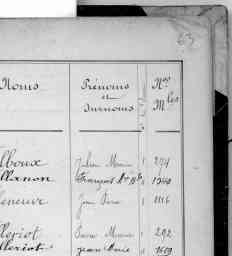 63
Noms
Prénoms
et
Surnoms
Nos
Mles
lboux Julien Marie 1 274
llanon François
neneuve Jean Pierre 1 1116
lleriot Pierre Marie 1 292
lleriot Jean Marie 1609